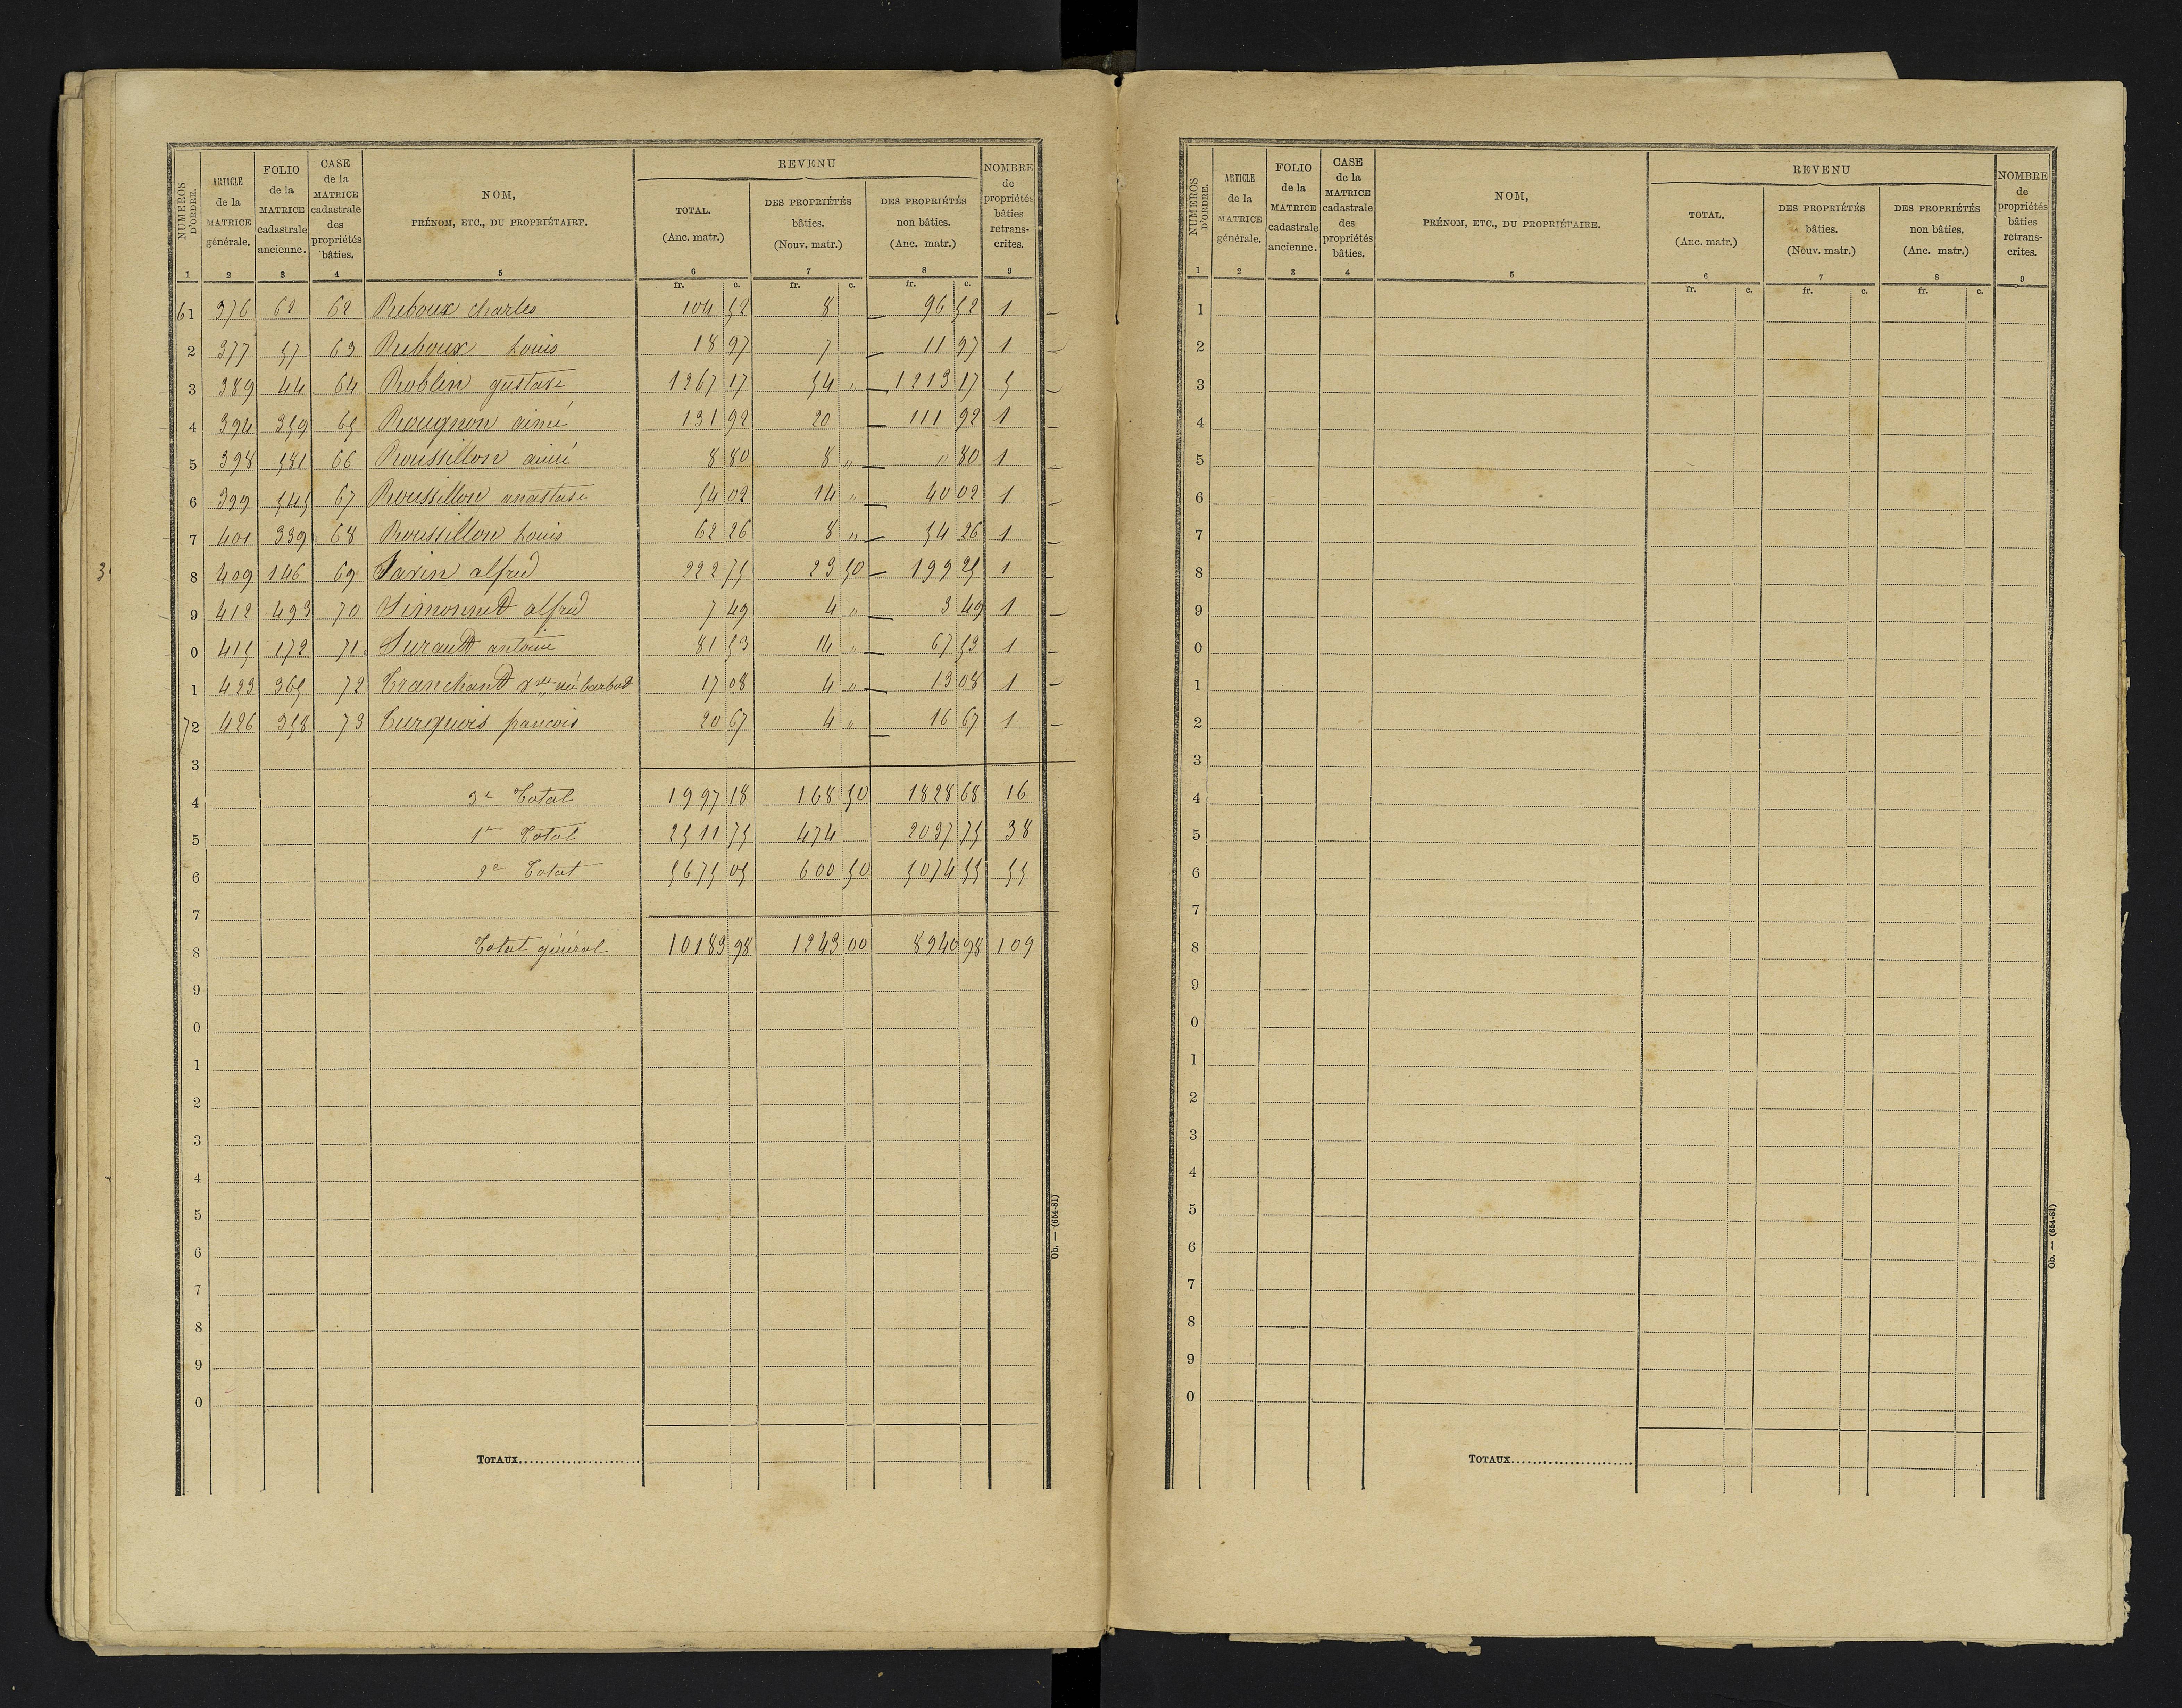 NUMÉROS D'ORDRE. | ARTICLE de la MATRICE générale. | FOLIO de la MATRICE cadastrale ancienne. | CASE de la MATRICE cadastrale des propriétés bâties. | NOM, PRÉNOM, ETC., DU PROPRIÉTAIRE. | REVENU TOTAL. (Anc. matr.) | DES PROPRIÉTÉS bâties. (Nouv. matr.) | DES PROPRIÉTÉS non bâties. (Anc. matr.) | NOMBRE de propriétés bâties retranscrites.
1 2 3 4 5 6 7 8 9
fr. c. fr. c. fr. c.
61 376 62 62 Reboux charles 104 52 8 — 96 52 1 —
2 377 57 63 Reboux Louis 18 97 7 — 11 97 1 —
3 389 44 64 Roblin gustave 1267 17 54 " — 1213 17 5 —
4 394 359 65 Rougnon aimé 131 92 20 — 111 92 1 —
5 398 581 66 Roussillon aimé 8 80 8 " — " 80 1 —
6 399 545 67 Roussillon anastase 54 02 14 " — 40 02 1 —
7 401 339 68 Roussillon Louis 62 26 8 " — 54 26 1 —
8 409 146 69 Savin alfred 222 75 23 50 — 199 25 1 —
9 412 493 70 Simonnet alfred 7 49 4 " — 3 49 1 —
0 415 172 71 Surault antoine 81 53 14 " — 67 53 1 —
1 423 365 72 Tranchant née barbat 17 08 4 " — 13 08 1 —
72 426 358 73 Turquois francois 20 67 4 " — 16 67 1 —
3
4 3e Total 1997 18 168 50 1828 68 16
5 1er Total 2511 75 474 2037 75 38
6 2e Total 5675 05 600 50 5074 55 55
7
8 Total général 10183 98 1243 00 8940 98 109
9
0
1
2
3
4
5
6
7
8
9
0
TOTAUX......................
Ob. — (654-81)
NUMÉROS D'ORDRE. | ARTICLE de la MATRICE générale. | FOLIO de la MATRICE cadastrale ancienne. | CASE de la MATRICE cadastrale des propriétés bâties. | NOM, PRÉNOM, ETC., DU PROPRIÉTAIRE. | REVENU TOTAL. (Anc. matr.) | DES PROPRIÉTÉS bâties. (Nouv. matr.) | DES PROPRIÉTÉS non bâties. (Anc. matr.) | NOMBRE de propriétés bâties retranscrites.
1 2 3 4 5 6 7 8 9
fr. c. fr. c. fr. c.
1
2
3
4
5
6
7
8
9
0
1
2
3
4
5
6
7
8
9
0
1
2
3
4
5
6
7
8
9
0
TOTAUX......................
Ob. — (654-81)